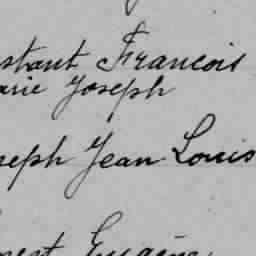 stant Francois
arie Joseph
seph Jean Louis
nest Eugène